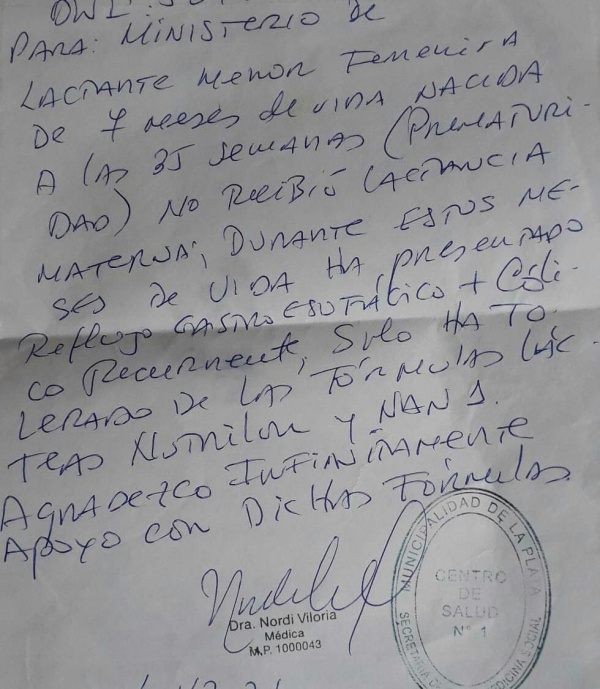 PARA: MINISTERIO DE
LACTANTE MENOR FEMENINA
DE 7 MESES DE VIDA NACIDA
A LAS 35 SEMANAS (PREMATURI-
DAD) NO RECIBIÓ LACTANCIA
MATERNA; DURANTE ESTOS ME-
SES DE VIDA HA PRESENTADO
REFLUJO GASTROESOFÁGICO + CÓLI-
CO RECURRENTE, SOLO HA TO-
LERADO DE LAS FÓRMULAS LÁC-
TEAS NUTRILON Y NAN 1.
AGRADEZCO INFINITAMENTE
APOYO CON DICHAS FÓRMULAS.
Dra. Nordi Viloria
Médica
M.P. 1000043
MUNICIPALIDAD DE LA PLATA
CENTRO
DE
SALUD
N° 1